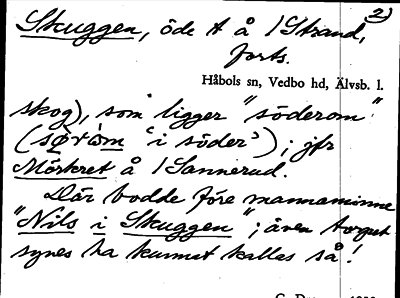 2)
Skuggen, öde t å 1 Strand,
forts.
Håbols sn, Vedbo hd, Älvsb. l.
skog), som ligger "söderom"
(sørəm 'i söder'); jfr
Mörkret å 1 Sannerud.
Där bodde före mannaminne
"Nils i Skuggen"; även torpet
synes ha kunnat kallas så!